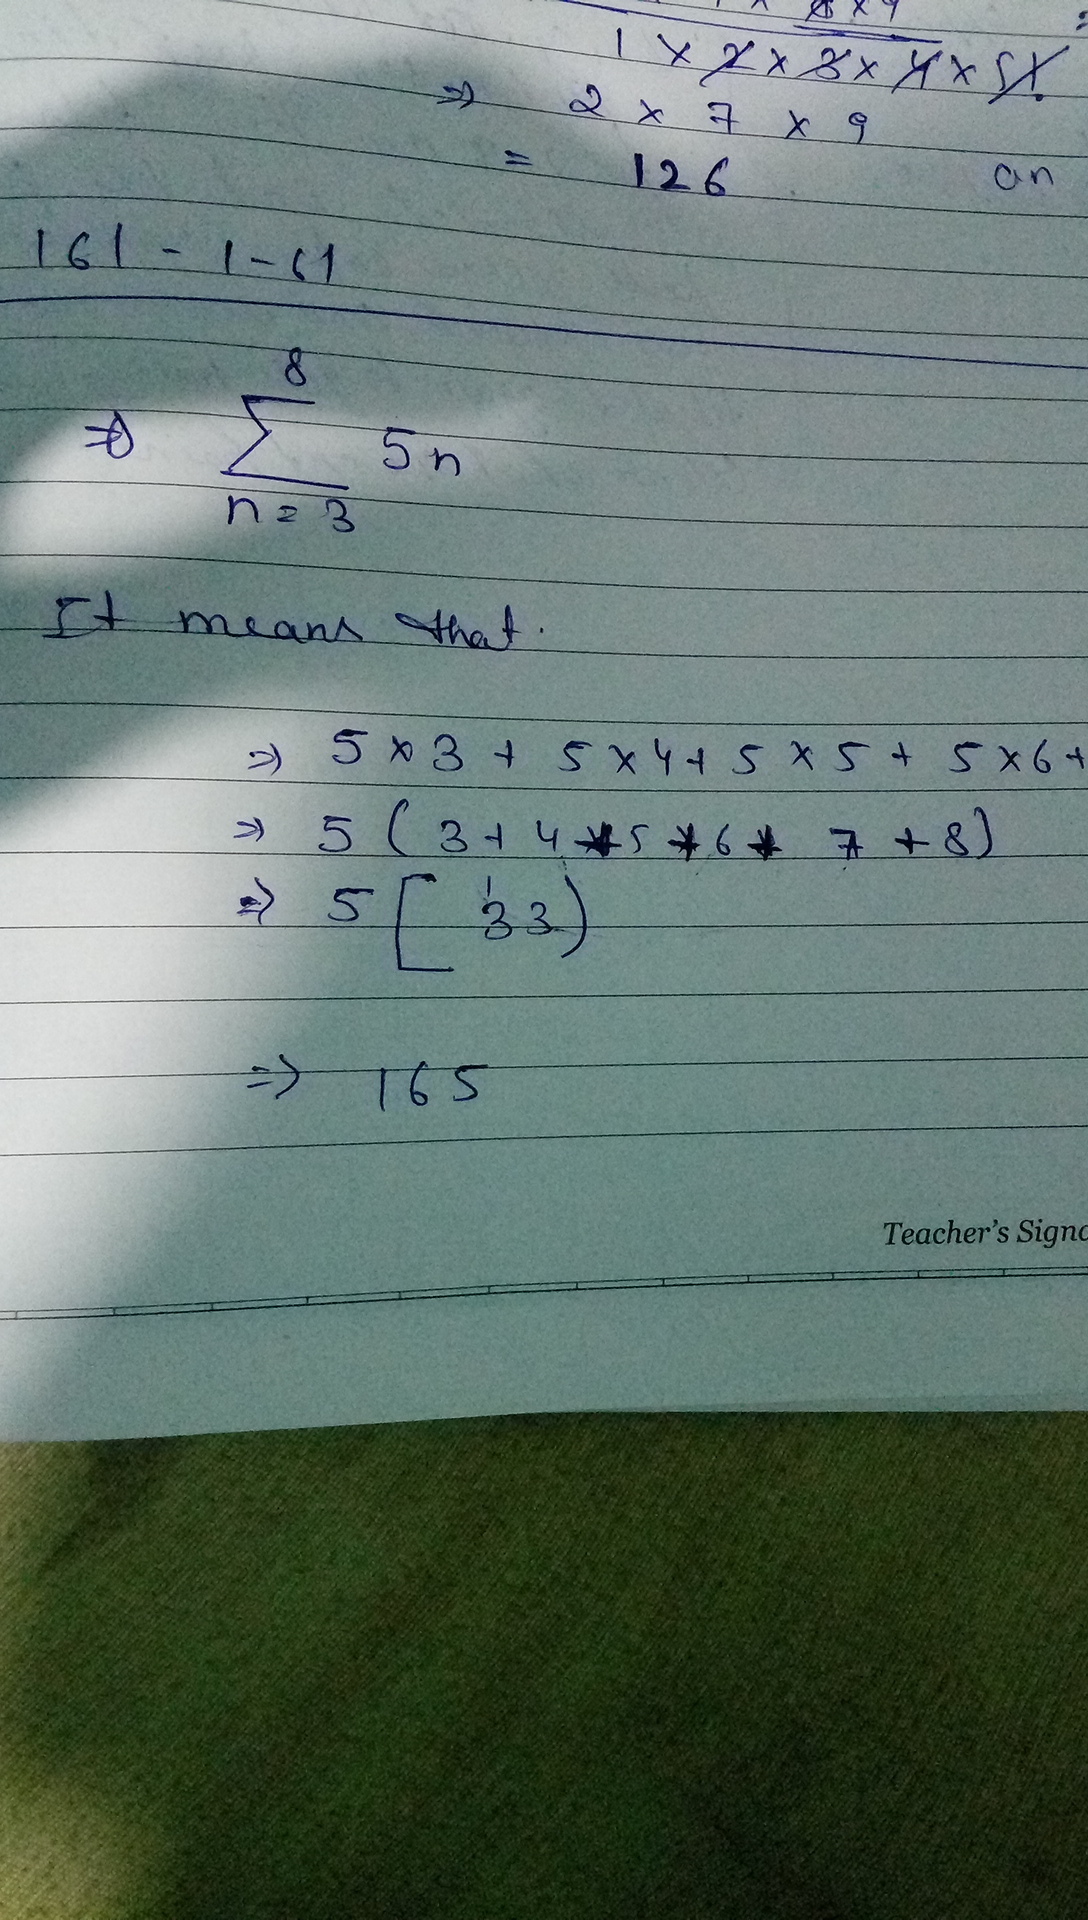 8 × 9
1 × 2 × 3 × 4 × 5!
⇒ 2 × 7 × 9
= 126 an
161 - 1-61
8
⇒ ∑ 5n
n = 3
It means that.
⇒ 5 × 3 + 5 × 4 + 5 × 5 + 5 × 6 +
⇒ 5 ( 3 + 4 + 5 + 6 + 7 + 8 )
⇒ 5 [ 33 )
⇒ 165
Teacher's Signa